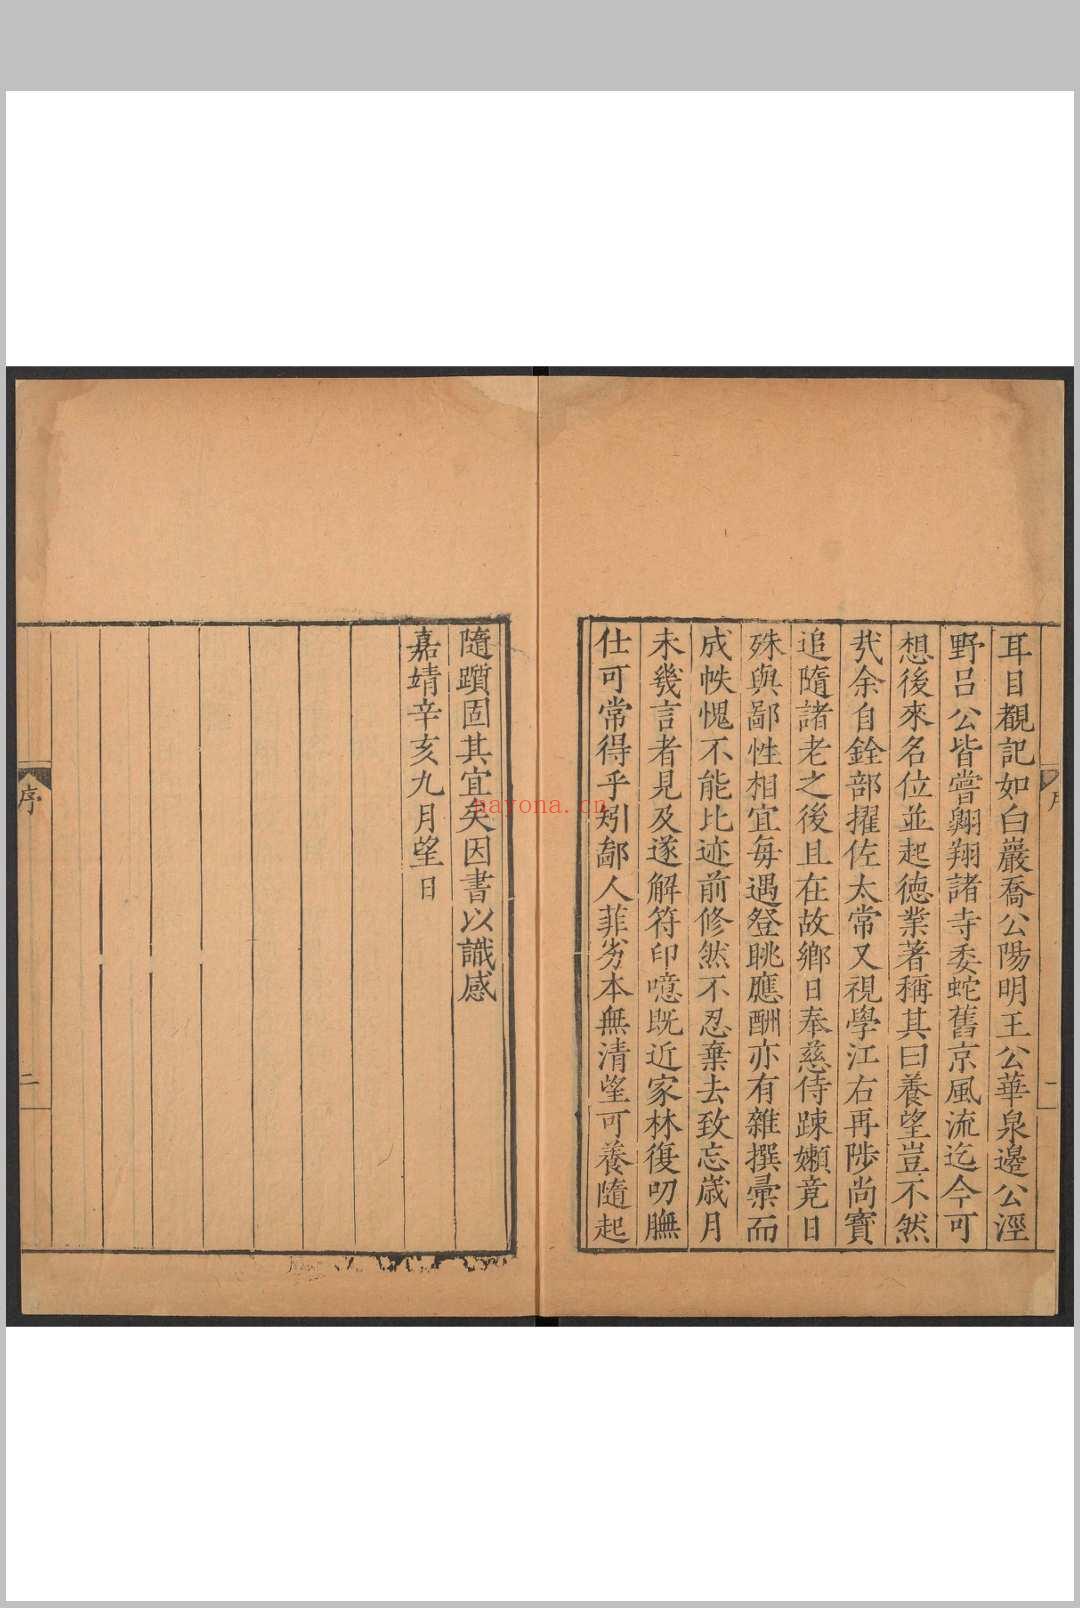 耳目覩記如白巖喬公陽明王公華泉邊公涇
野呂公皆嘗翱翔諸寺委蛇舊京風流迄今可
想後來名位並起徳業著稱其曰養望豈不然
㢤余自銓部擢佐太常又視學江右再陟尚寶
追隨諸老之後且在故鄉日奉慈侍踈嬾竟日
殊與鄙性相宜每遇登眺應酬亦有雜撰彙而
成帙愧不能比迹前修然不忍棄去致忘歳月
未幾言者見及遂解符印噫既近家林復叨膴
仕可常得乎矧鄙人菲劣本無清望可養隨起
隨躓固其宜矣因書以識感
嘉靖辛亥九月望日
序
二
nayona.cn